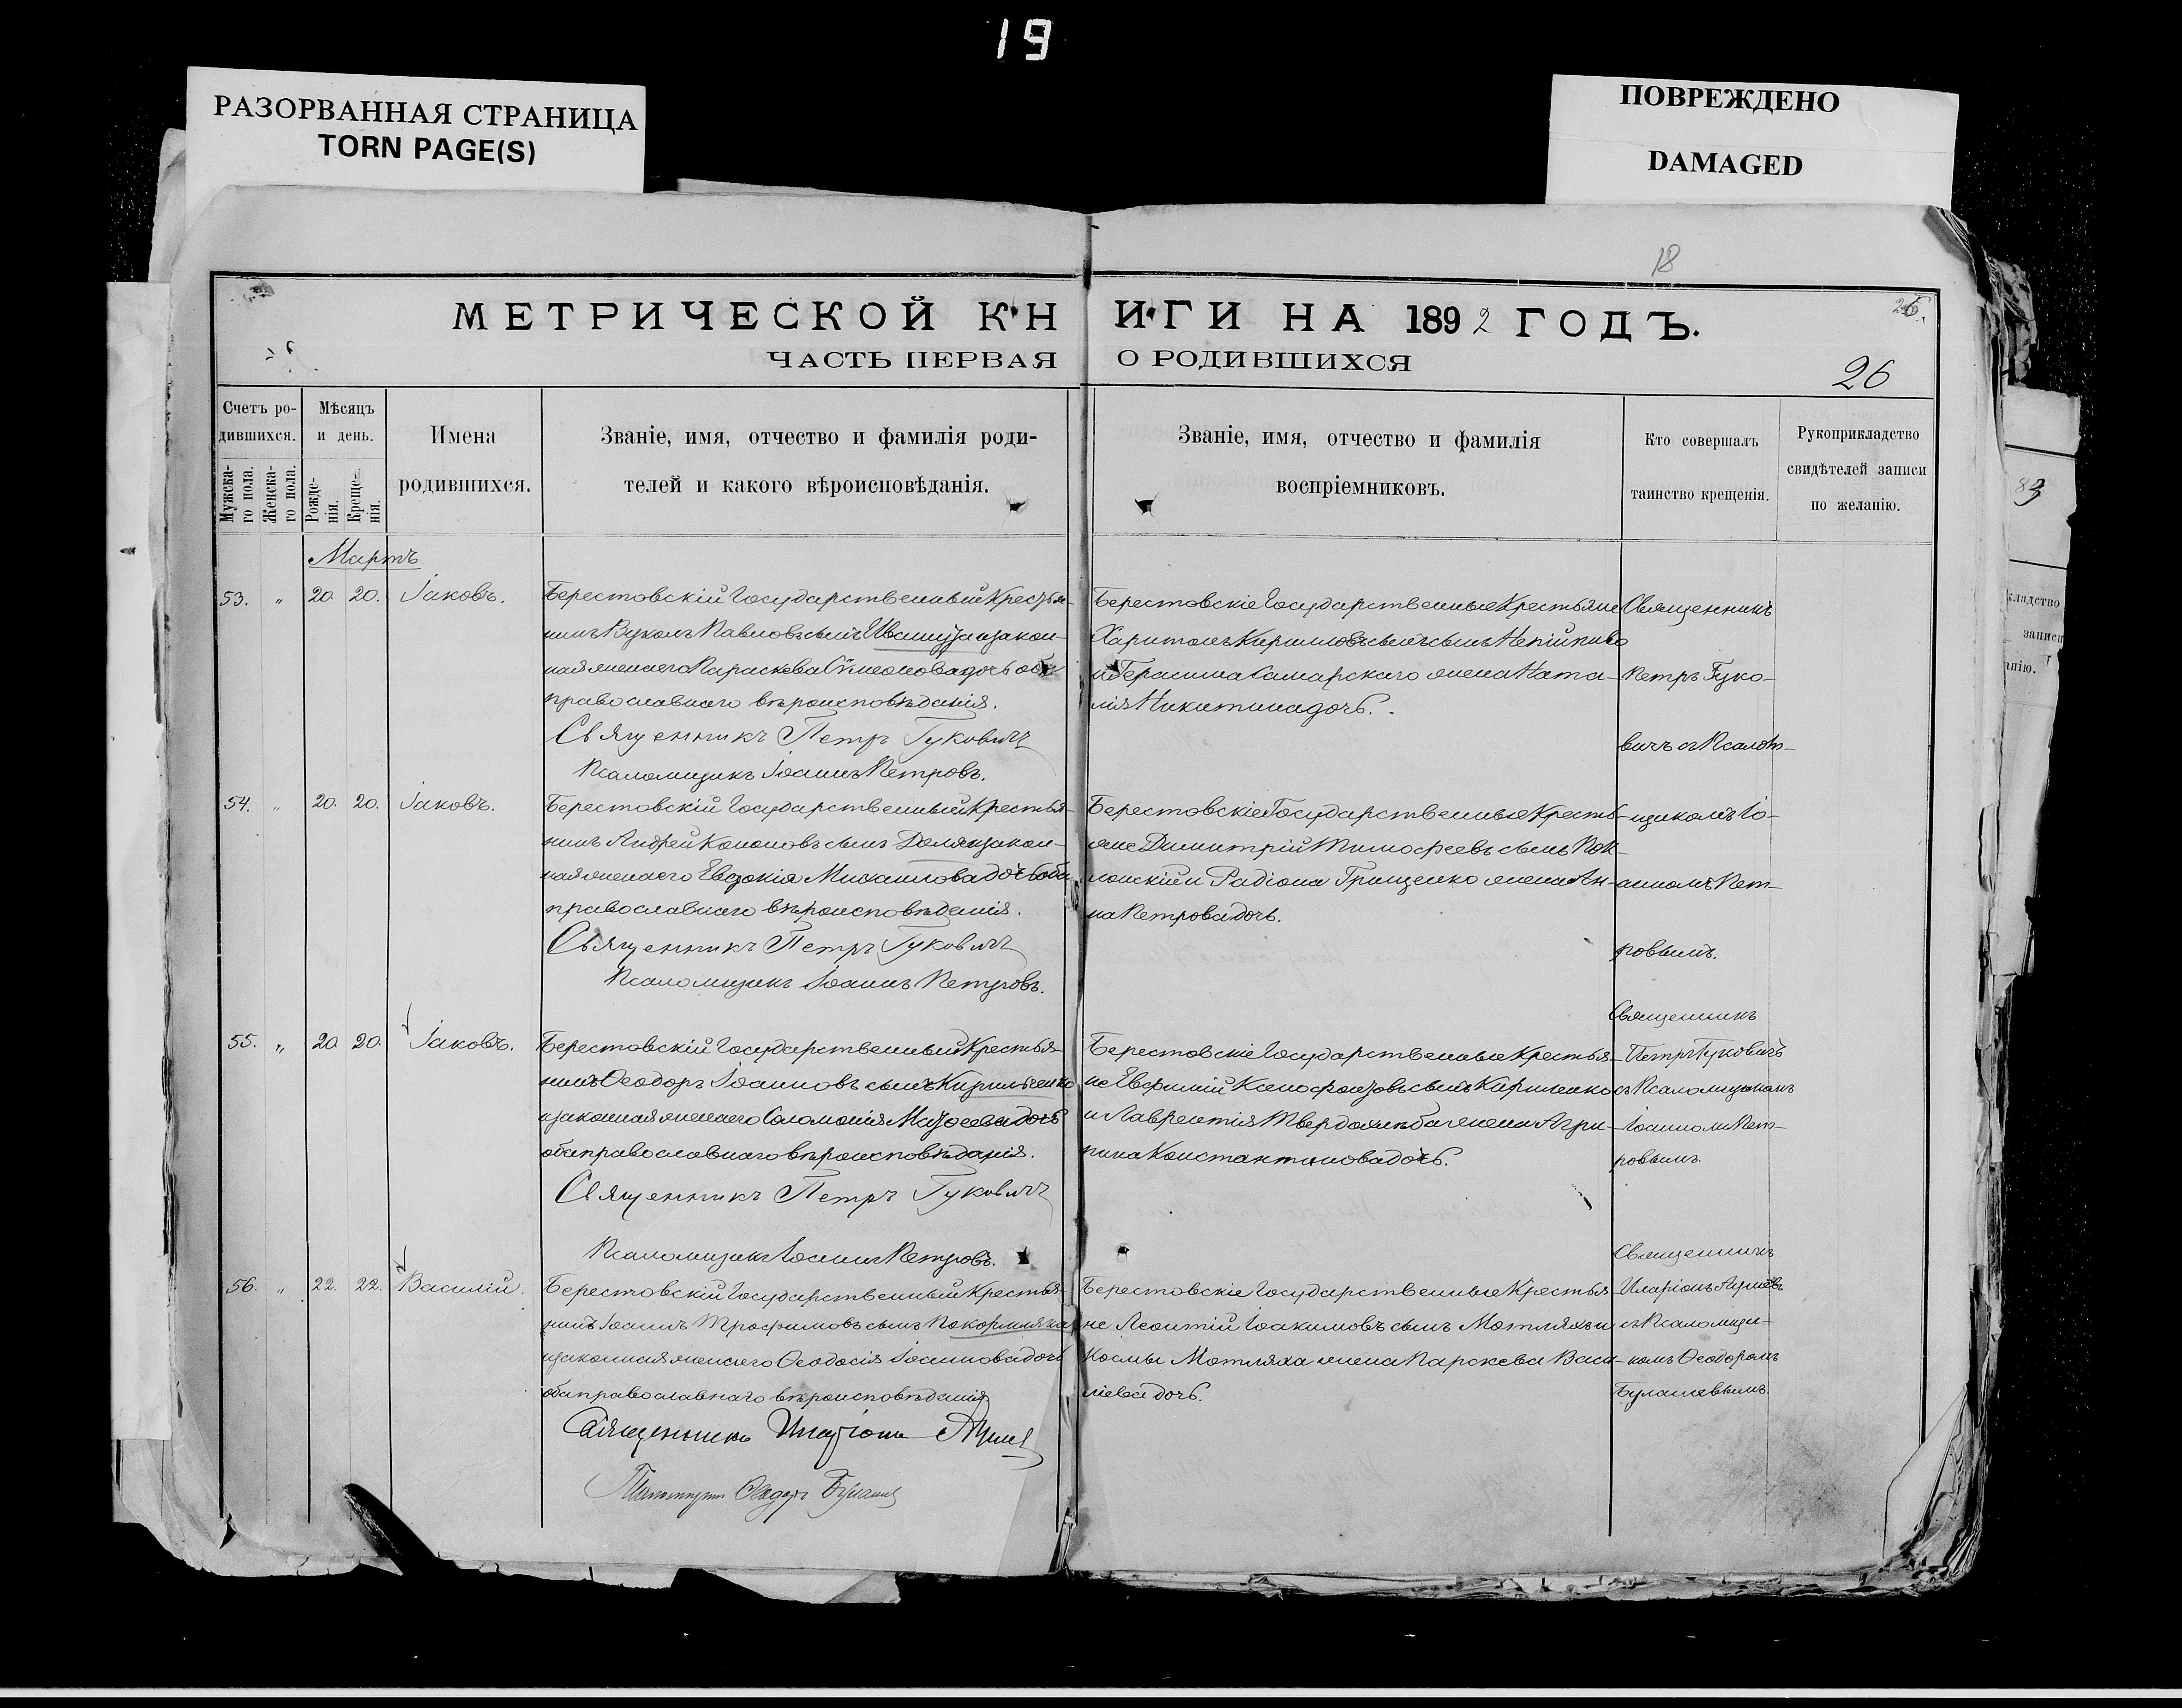 19
РАЗОРВАННАЯ СТРАНИЦА
TORN PAGE(S)
ПОВРЕЖДЕНО
DAMAGED
18
МЕТРИЧЕСКОЙ КНИГИ НА 1892 ГОДЪ.
25.
ЧАСТЬ ПЕРВАЯ О РОДИВШИХСЯ
26
Счетъ ро-
дившихся.
Мужска-
го пола.
Женска-
го пола.
Мѣсяцъ
и день.
Рожде-
нія.
Креще-
нія.
Имена
родившихся.
Званіе, имя, отчество и фамилія роди-
телей и какого вѣроисповѣданія.
Званіе, имя, отчество и фамилія
воспріемниковъ.
Кто совершалъ
таинство крещенія.
Рукоприкладство
свидѣтелей записи
по желанію.
Мартъ
53. " 20. 20. Іаковъ.
Берестовскій Государственный Крестья-
нинъ Вуколъ Павловъ сынъ Иваница и закон-
ная жена его Параскева Симеонова дочь оба
православнаго вѣроисповѣданія.
Священникъ Петръ Гуковичъ
Псаломщикъ Іоаннъ Петровъ.
Берестовскіе Государственные Крестьяне
Харитонъ Кирилловъ сынъ
и Герасима Самарского жена Ната-
лія Никитина дочь.
Священникъ
Петръ Гуко-
вичъ съ Псалом-
щикомъ Іо-
анномъ Пет-
ровымъ.
54. " 20. 20. Іаковъ.
Берестовскій Государственный Крестья-
нинъ Андрей Кононовъ сынъ Доля и закон-
ная жена его Евдокія Михаилова дочь оба
православнаго вѣроисповѣданія.
Священникъ Петръ Гуковичъ
Псаломщикъ Іоаннъ Петровъ.
Берестовскіе Государственные Кресть-
яне Димитрій Тимофеевъ сынъ
и Радіона Грищенко жена Ан-
на Петрова дочь.
55. " 20. 20. Іаковъ.
Берестовскій Государственный Крестья-
нинъ Ѳеодоръ Іоанновъ сынъ Кириченко
и законная жена его Соломонія Матѳеева дочь
оба православнаго вѣроисповѣданія.
Священникъ Петръ Гуковичъ
Псаломщикъ Іоаннъ Петровъ.
Берестовскіе Государственные Крестья-
не Евфимій Ксенофонтовъ сынъ Кириченко
и Лаврентія Твердохлѣба жена Агри-
пина Константинова дочь.
Священникъ
Петръ Гуковичъ
съ Псаломщикомъ
Іоанномъ Пет-
ровымъ.
56. " 22. 22. Василій.
Берестовскій Государственный Крестья-
нинъ Іоаннъ Трофимовъ сынъ Покормляха
и законная жена его Ѳеодосія Іоаннова дочь
оба православнаго вѣроисповѣданія
Священникъ Иларіонъ
Псаломщикъ Ѳеодоръ Булашевъ
Берестовскіе Государственные Крестья-
не Леонтій Іоакимовъ сынъ Мотляхъ и
Космы Мотляха жена Парскева Васи-
ліева дочь.
Священникъ
Иларіонъ
съ Псаломщи-
комъ Ѳеодоромъ
Булашевымъ.
83
кладство
записи
анію.